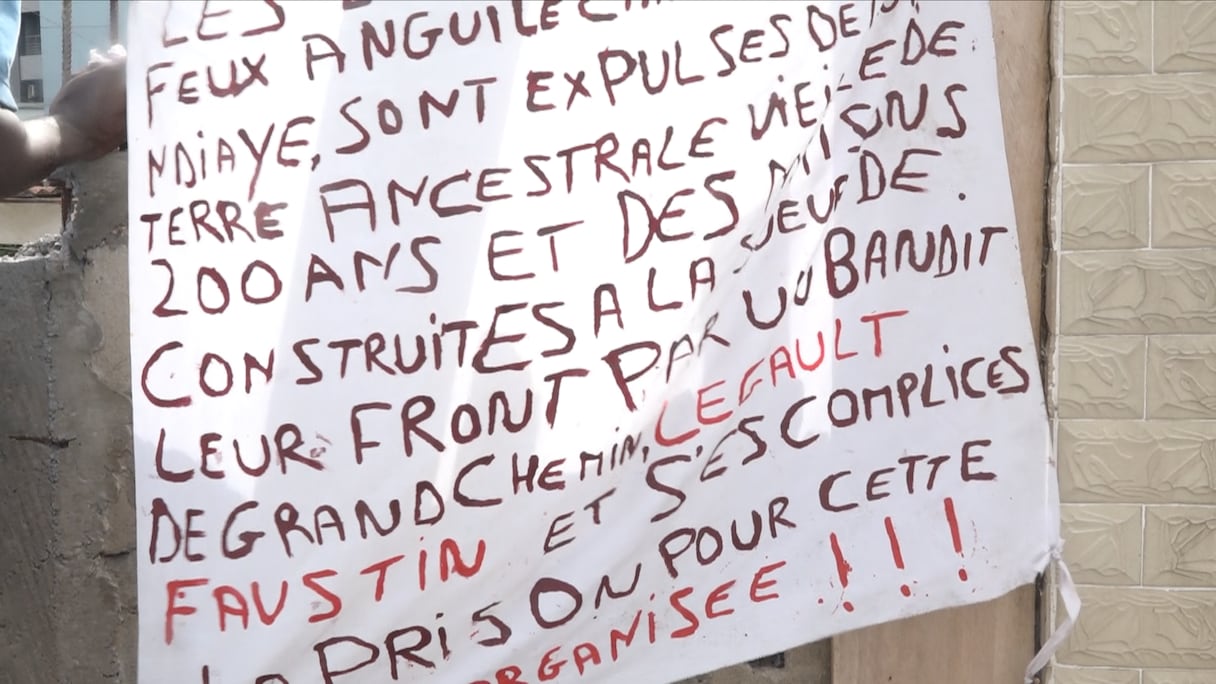 LES
FEUX ANGUILE
NDiAYE, SONT EXPULSES DE
TERRE ANCESTRALE VIEiLE DE
200 ANS ET DES
CONSTRUiTES A LA SUEUR DE
LEUR FRONT PAR UN BANDIT
DE GRAND CHEMiN, LEGAULT
FAUSTiN ET S'ES COMPLiCES
LA PRiSON POUR CETTE
ORGANiSEE ! ! !